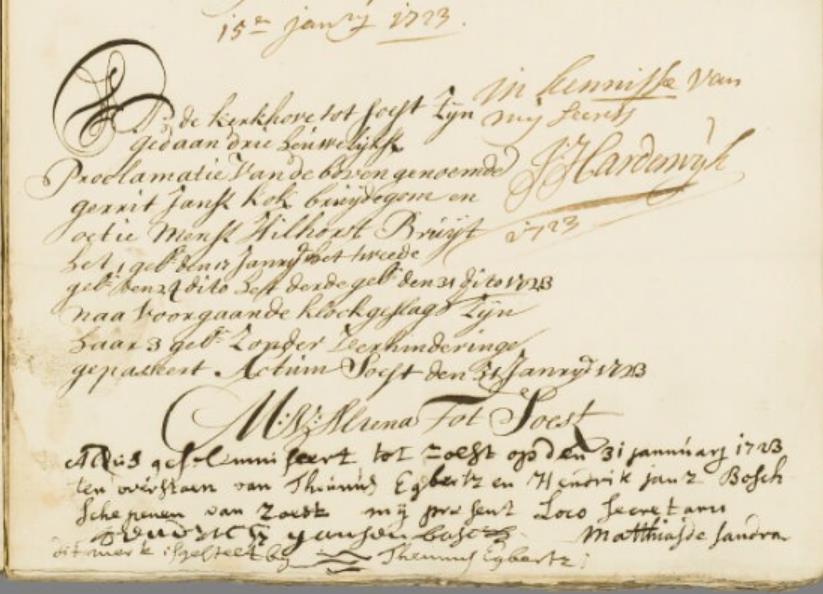 15e janry 1723.
in kennisse van
mij secrts
J Hardewijk
1723
Op de kerkhove tot soest Zijn
gedaan drie houwelijkse
Proclamatie van de boven genoemde
gerrit Jansz kok bruijdegom en
oetie Mensz Hilhorst Bruijt
het 1 geb den 17 Janry het tweede
geb den 24 dito het derde geb den 31 dito 1723
naa voorgaande klockgeslagh Zijn
haar 3 geb Zonder Verhinderinge
gepasseert Actum Soest den 31 Janry 1723
M: V: Altena Tot Soest
aldus gesolemniseert tot Zoest op den 31 januarij 1723
ten overstaen van Theunis Egbertz en Hendrik janz Bosch
schepenen van Zoest mij present Loco secretaris
hendrick jansen bosch Matthias de Sandra
dit merk is gestelt bij Theunis Egbertz